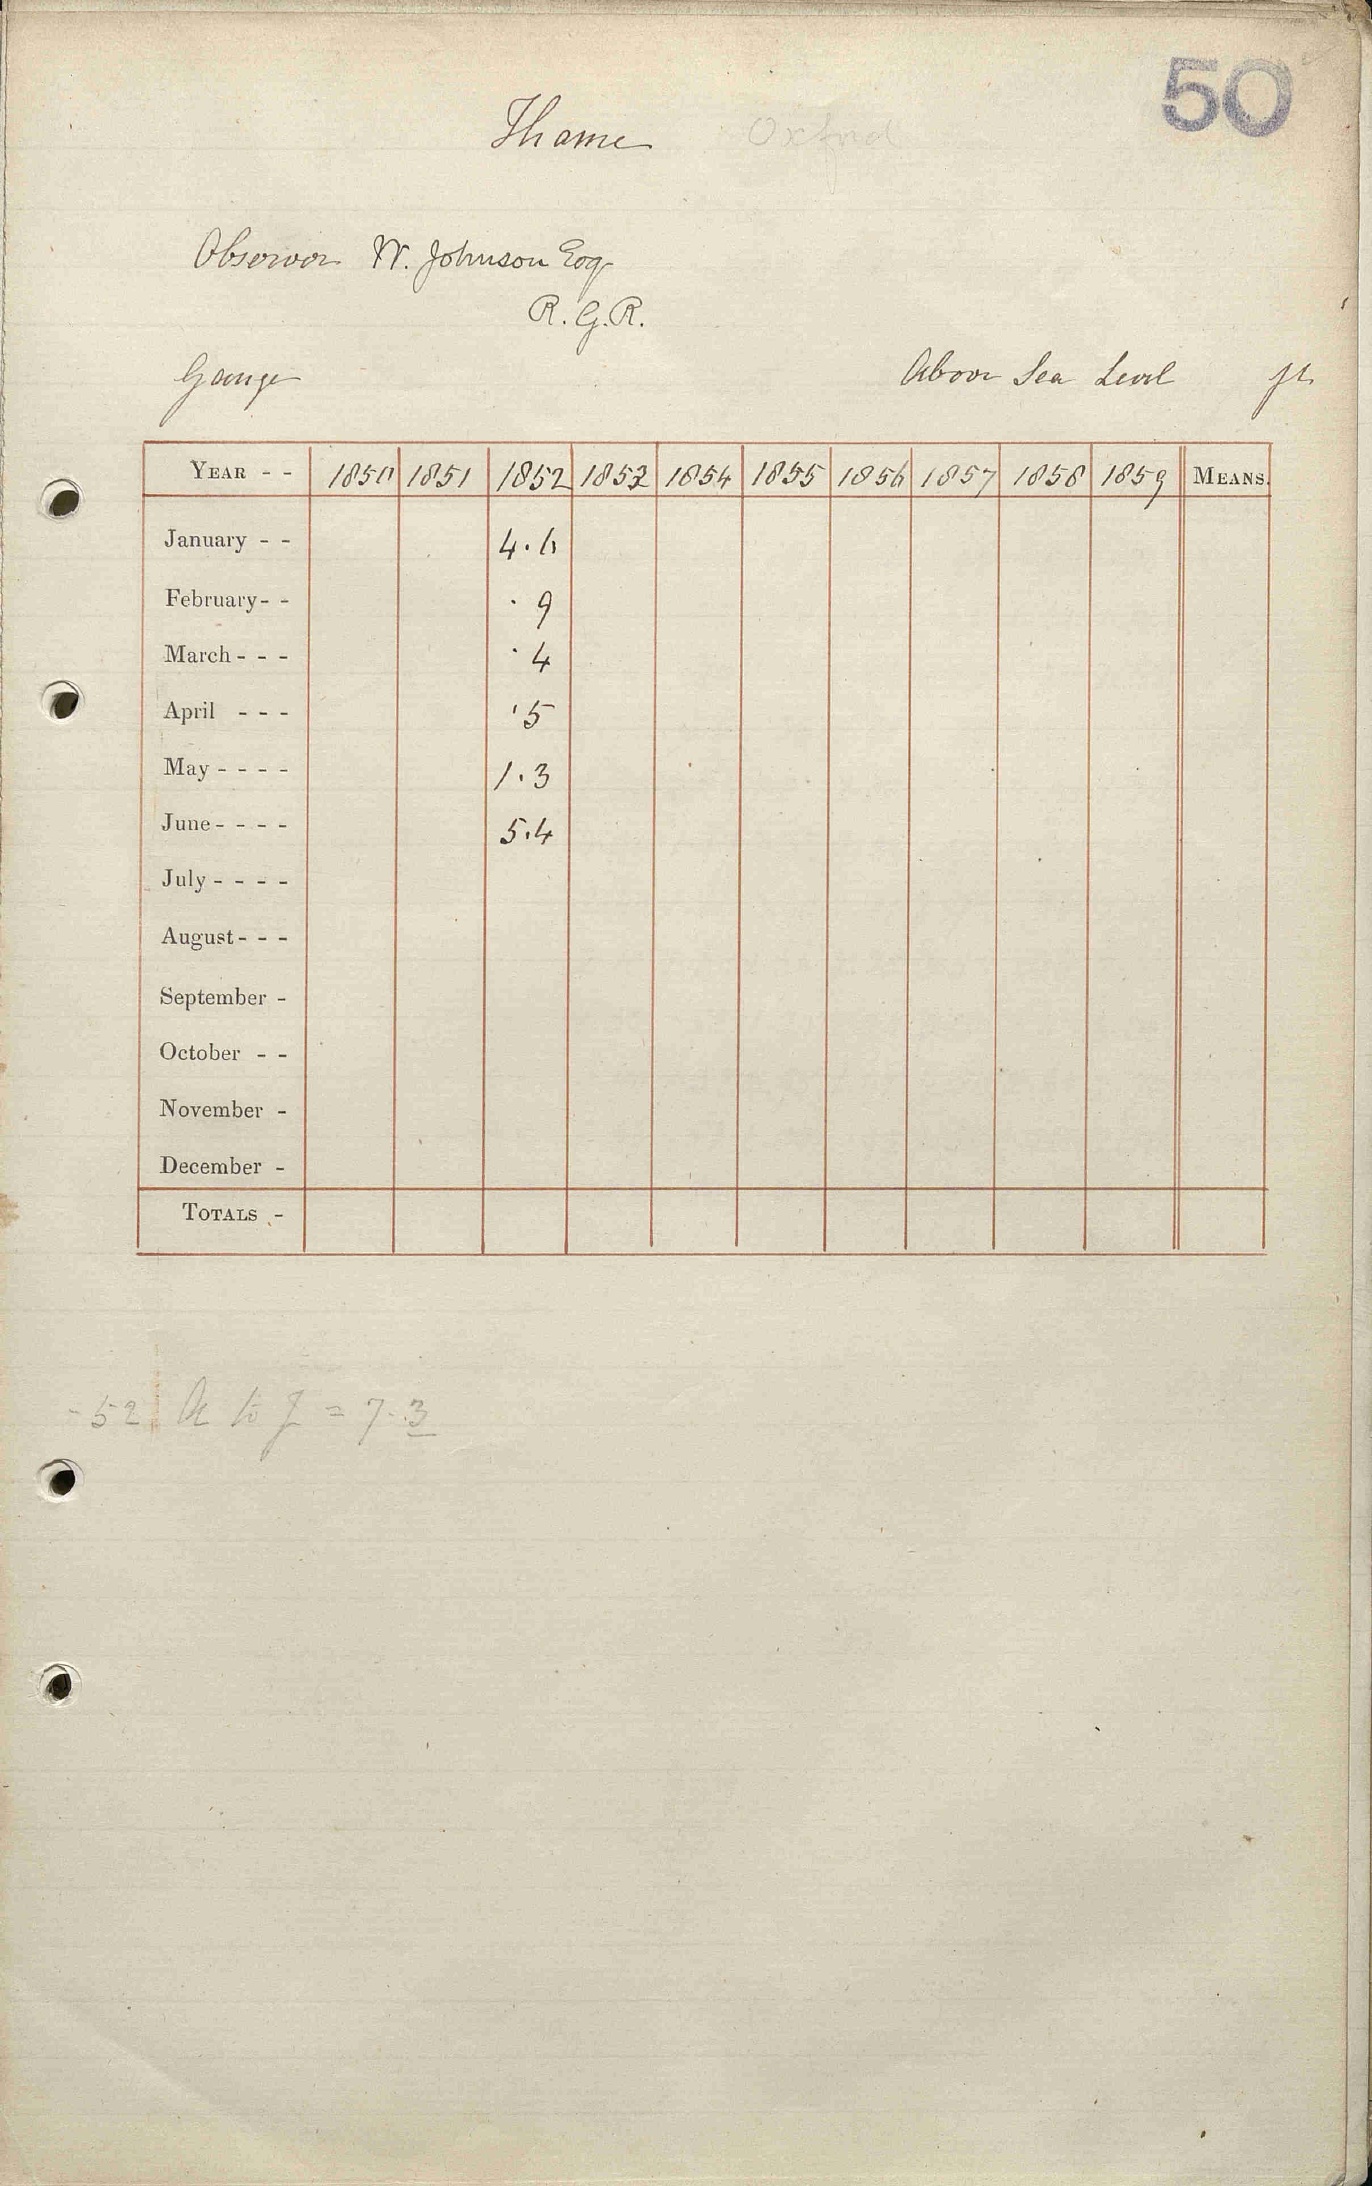 50
Thame Oxford
Observer W. Johnson Esq
R.G.R.
Gauge Above Sea Level ft
YEAR - - 1850 1851 1852 1853 1854 1855 1856 1857 1858 1859 MEANS.
January - - 4.6
February - - .9
March - - - .4
April - - - .5
May - - - - 1.3
June - - - - 5.4
July - - - -
August - - -
September -
October - -
November -
December -
TOTALS -
-52 A to J = 7.3